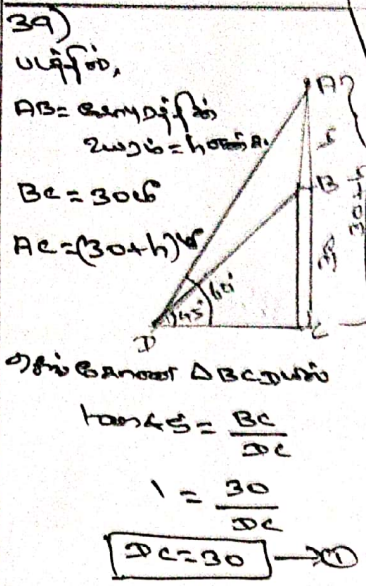 39)
படத்தில்,
AB = கோபுரத்தின்
உயரம் = h என்க.
BC = 30மீ
AC = (30+h)மீ
A
B
30+h
60°
45°
D
C
செங்கோண ΔBCDயில்
tan45 = BC/DC
1 = 30/DC
DC = 30 → ①